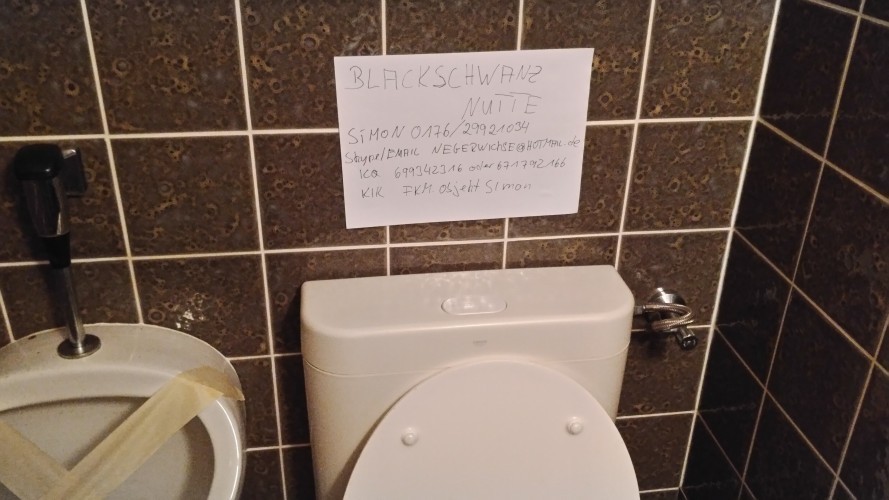 BLACKSCHWANZ
NUTTE
SIMON 0176/29921034
Skype/EMAIL NEGERWICHSE@HOTMAIL.de
ICQ 699342316 oder 671792166
KIK FKM. Objekt Simon